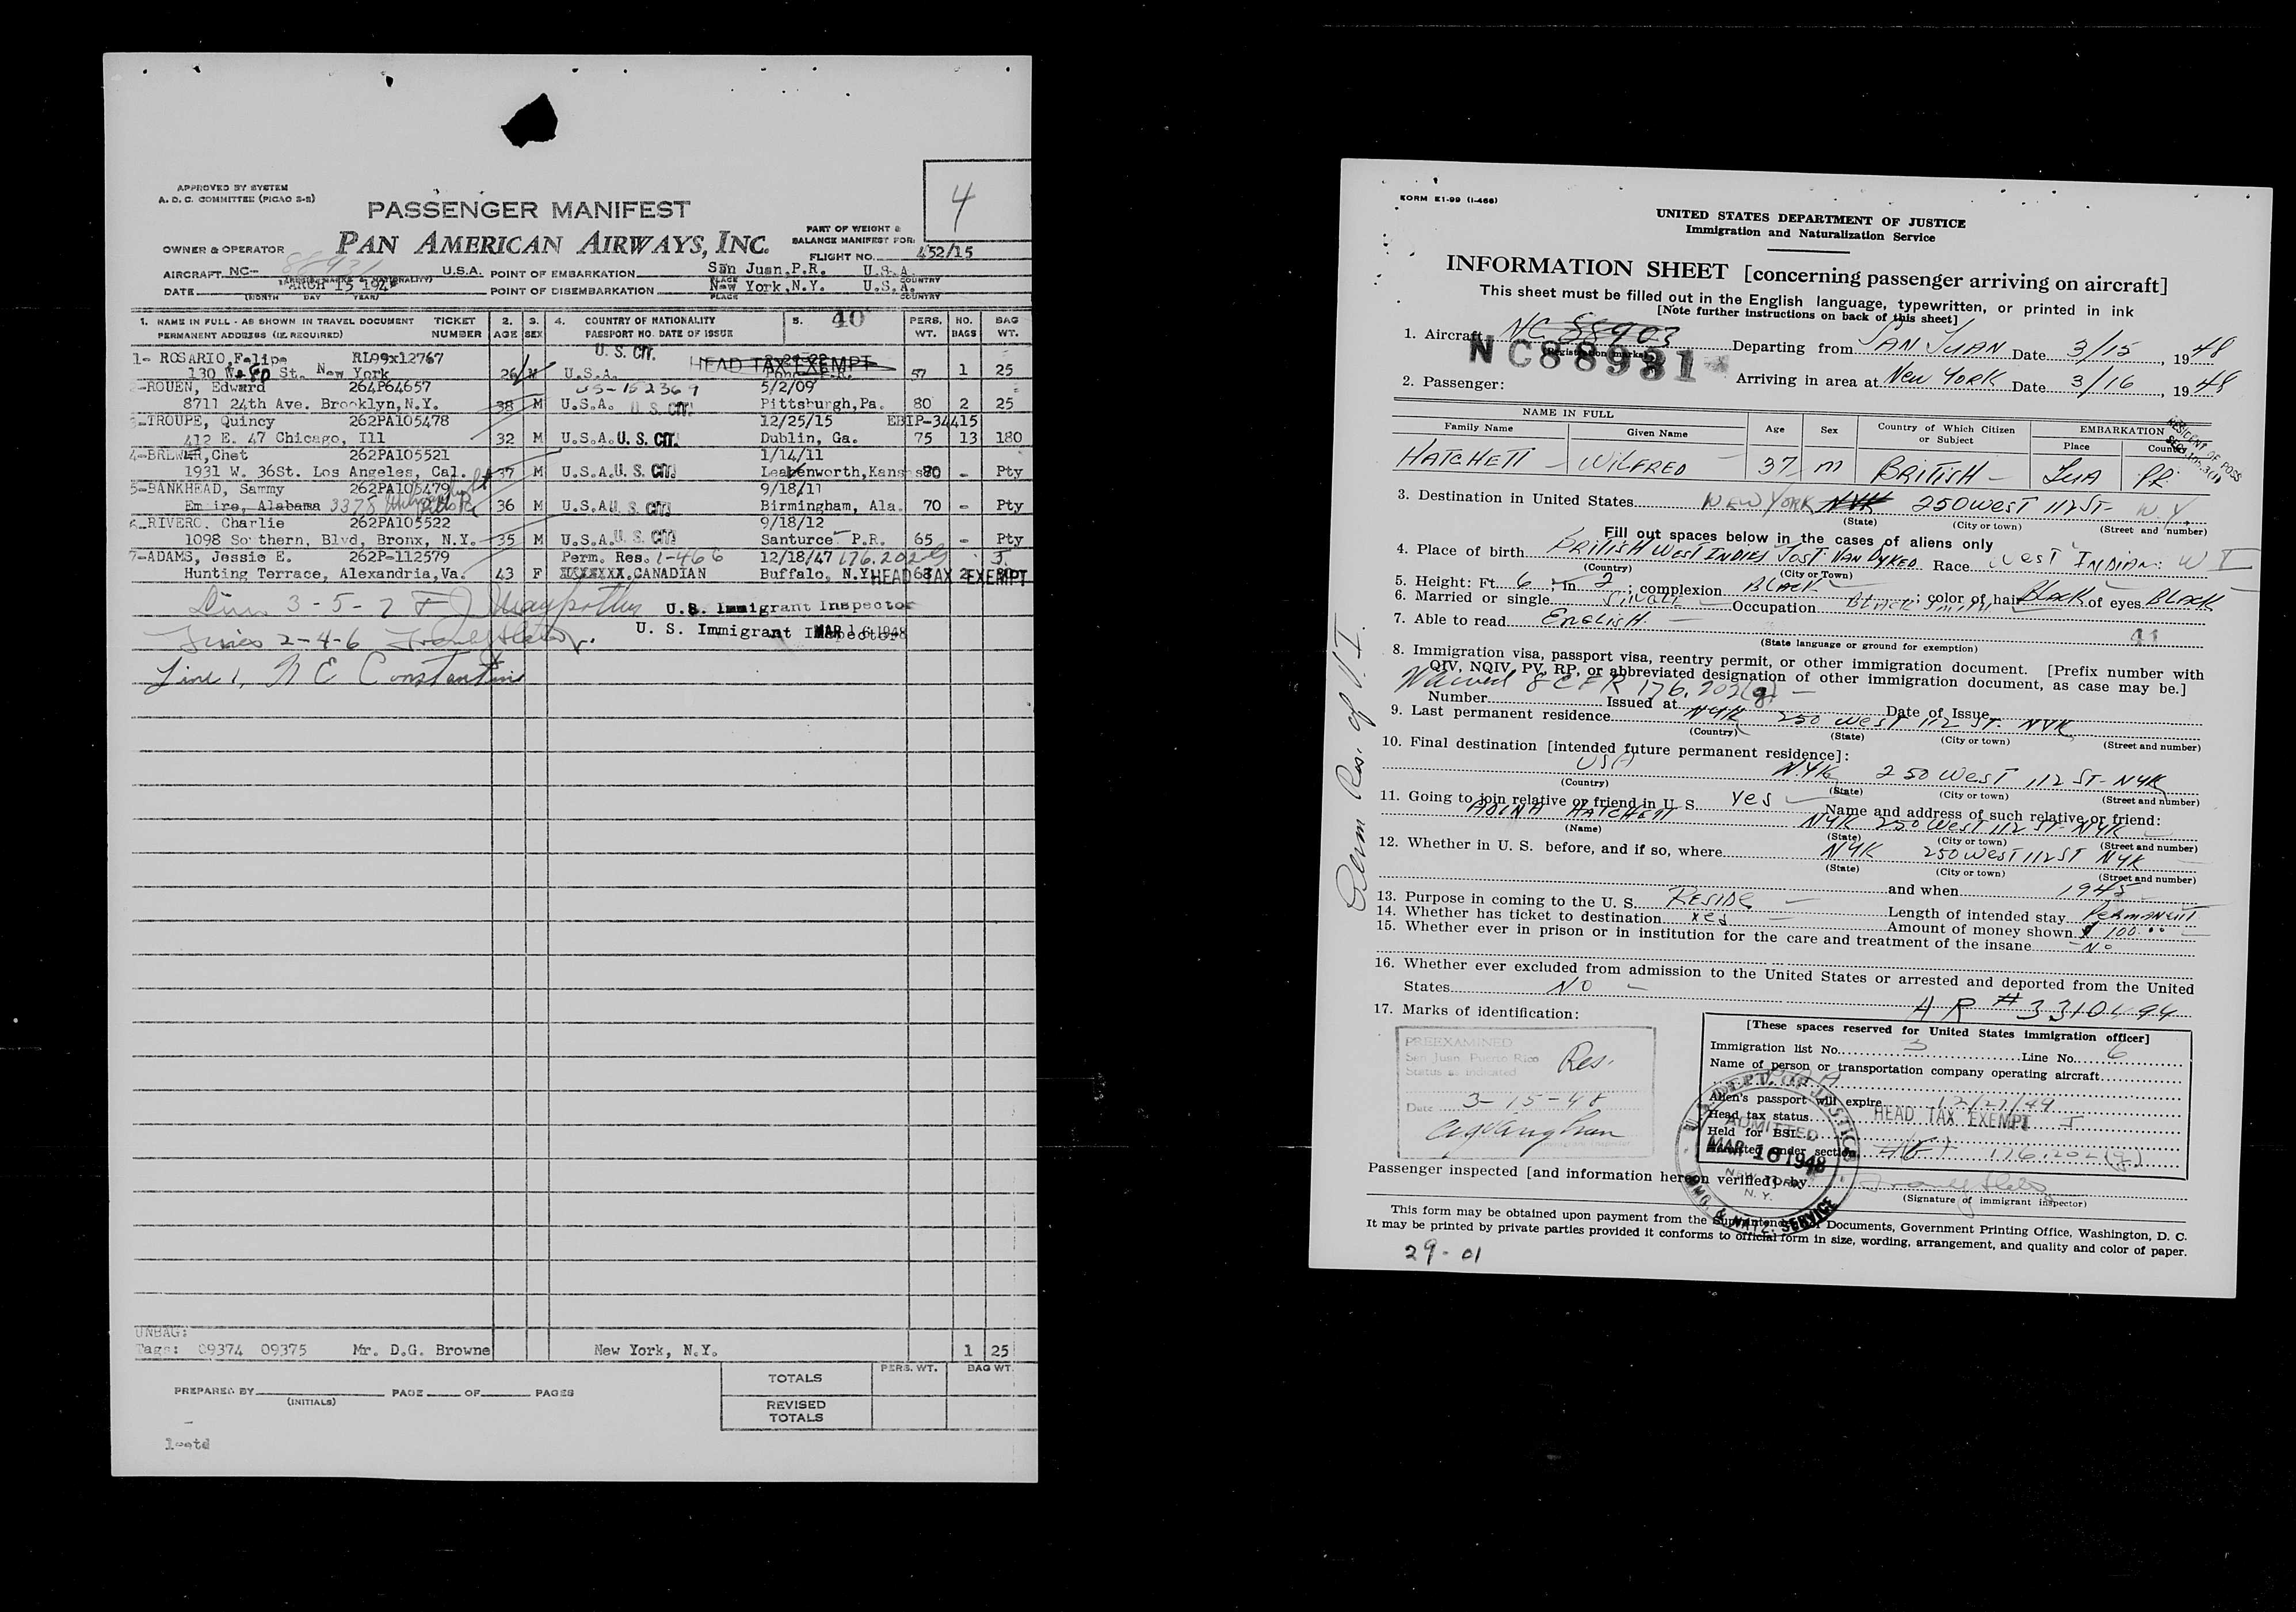 APPROVED BY SYSTEM
A. D. C. COMMITTEE (PICAO 2-2)
4
PASSENGER MANIFEST
PAN AMERICAN AIRWAYS, INC.
PART OF WEIGHT &
BALANCE MANIFEST FOR:
OWNER & OPERATOR
FLIGHT NO. 452/15
AIRCRAFT NC- 88931 U.S.A. POINT OF EMBARKATION San Juan,P.R. U.S.A.
PLACE COUNTRY
DATE MARCH 15 1948 POINT OF DISEMBARKATION New York,N.Y. U.S.A.
(MONTH DAY YEAR) PLACE COUNTRY
1. NAME IN FULL - AS SHOWN IN TRAVEL DOCUMENT TICKET 2. 3. 4. COUNTRY OF NATIONALITY 5. 40 PERS. NO. BAG
PERMANENT ADDRESS (IF REQUIRED) NUMBER AGE SEX PASSPORT NO. DATE OF ISSUE WT. BAGS WT.
1- ROSARIO,Felipe RL99x12767 U. S. CIT. HEAD TAX EXEMPT
130 W. 60 St. New York 26 M U.S.A. 57 1 25
2-ROUEN, Edward 264P64657 US-152369 5/2/09
8711 24th Ave. Brooklyn,N.Y. 38 M U.S.A. U. S. CIT. Pittsburgh,Pa. 80 2 25
3-TROUPE, Quincy 262PA105478 12/25/15 EBIP-34415
412 E. 47 Chicago, Ill 32 M U.S.A. U. S. CIT. Dublin, Ga. 75 13 180
4-BREWER,Chet 262PA105521 1/14/11
1931 W. 36St. Los Angeles, Cal. 37 M U.S.A. U. S. CIT. Leavenworth,Kansas 80 - Pty
5-BANKHEAD, Sammy 262PA105479 9/18/11
Empire, Alabama 3375 36 M U.S.A. U. S. CIT. Birmingham, Ala. 70 - Pty
6-RIVERO. Charlie 262PA105522 9/18/12
1098 Southern, Blvd, Bronx, N.Y. 35 M U.S.A. U. S. CIT. Santurce P.R. 65 - Pty
7-ADAMS, Jessie E. 262P-112579 Perm. Res. I-466 12/18/47 176.202 G J.
Hunting Terrace, Alexandria,Va. 43 F XXXXXXX.CANADIAN Buffalo, N.Y. HEAD TAX EXEMPT
3-5-7 U.S. Immigrant Inspector
Lines 2-4-6 U. S. Immigrant Inspector MAR 16 1948
Line 1, N E Constantine
UNBAG:
Tags: 09374 09375 Mr. D.G. Browne New York, N.Y. 1 25
TOTALS PERS. WT. BAG WT.
PREPARED BY PAGE OF PAGES
(INITIALS)
REVISED
TOTALS
FORM E1-99 (I-466)
UNITED STATES DEPARTMENT OF JUSTICE
Immigration and Naturalization Service
INFORMATION SHEET [concerning passenger arriving on aircraft]
This sheet must be filled out in the English language, typewritten, or printed in ink
[Note further instructions on back of this sheet]
1. Aircraft NC 88903 Departing from SAN JUAN Date 3/15, 1948
(Registration marks)
NC88931
2. Passenger: Arriving in area at New York Date 3/16, 1948
NAME IN FULL Age Sex Country of Which Citizen or Subject EMBARKATION
Family Name Given Name Place Country
HATCHETT WILFRED 37 M BRITISH SJUA PR
3. Destination in United States NEW YORK NYK 250 West 112 ST- N.Y.
(State) (City or town) (Street and number)
Fill out spaces below in the cases of aliens only
4. Place of birth BRITISH WEST INDIES JOST VAN DYKED Race West INDIAN: W I
(Country) (City or Town)
5. Height: Ft. 6, in 2; complexion BLACK; color of hair Black of eyes BLACK
6. Married or single SINGLE Occupation BLACK SMITH
7. Able to read ENGLISH
(State language or ground for exemption) 41
8. Immigration visa, passport visa, reentry permit, or other immigration document. [Prefix number with
QIV, NQIV, PV, RP, or abbreviated designation of other immigration document, as case may be.]
Waived 8 CFR 176.202(g)
Number Issued at Date of Issue
9. Last permanent residence NYK 250 West 112 ST. NYK
(Country) (State) (City or town) (Street and number)
10. Final destination [intended future permanent residence]:
USA NYK 250 West 112 ST- NYK
(Country) (State) (City or town) (Street and number)
11. Going to join relative or friend in U. S. Yes Name and address of such relative or friend:
ADINA HATCHETT NYK 250 West 112 ST- NYK
(Name) (State) (City or town) (Street and number)
12. Whether in U. S. before, and if so, where NYK 250 West 112 ST NYK
(State) (City or town) (Street and number)
and when 1945
13. Purpose in coming to the U. S. RESIDE Length of intended stay PERMANENT
14. Whether has ticket to destination yes Amount of money shown $ 100.00
15. Whether ever in prison or in institution for the care and treatment of the insane No
16. Whether ever excluded from admission to the United States or arrested and deported from the United
States NO
A R # 3310494
17. Marks of identification:
PREEXAMINED
San Juan, Puerto Rico
Status as indicated Res.
Date 3-15-48
[These spaces reserved for United States immigration officer]
Immigration list No. 3 Line No. 6
Name of person or transportation company operating aircraft
Alien's passport will expire 12/27/49
Head tax status HEAD TAX EXEMPT J
Held for BSI
Admitted under section 176.202(g)
U.S. DEPT. OF JUSTICE
ADMITTED
MAR 16 1948
NEW YORK
N. Y.
IMMG. & NATZ. SERVICE
Passenger inspected [and information hereon verified] by
(Signature of immigrant inspector)
This form may be obtained upon payment from the Superintendent of Documents, Government Printing Office, Washington, D. C.
It may be printed by private parties provided it conforms to official form in size, wording, arrangement, and quality and color of paper.
29-01
Res. of V I.